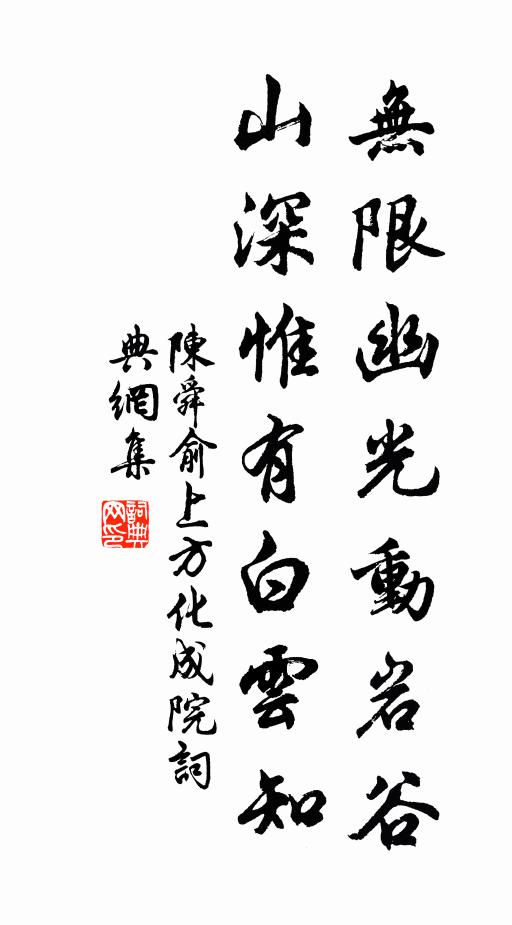 無限幽光動岩谷
山深惟有白雲知
陳舜俞上方化成院詞
典網集
詞典网印